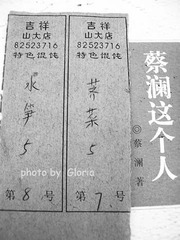 吉祥
山大店
82523716
特色馄饨
水笋
5
第8号
吉祥
山大店
82523716
特色馄饨
荠菜
5
第7号
蔡澜这个人
◎蔡澜 著
photo by Gloria